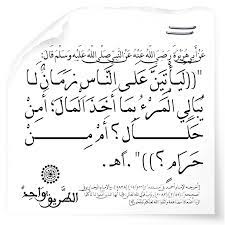 عَنْ أَبِي هُرَيْرَةَ رَضِيَ اللَّهُ عَنْهُ عَنِ النَّبِيِّ صَلَّى اللَّهُ عَلَيْهِ وَسَلَّمَ قَالَ:
((لَيَأْتِيَنَّ عَلَى النَّاسِ زَمَانٌ لَا
يُبَالِي الْمَرْءُ بِمَا أَخَذَ الْمَالَ؛ أَمِنْ
حَلَالٍ؟ أَمْ مِنْ
حَرَامٍ؟)). اهـ.
الطَّرِيقُ وَاحِدٌ